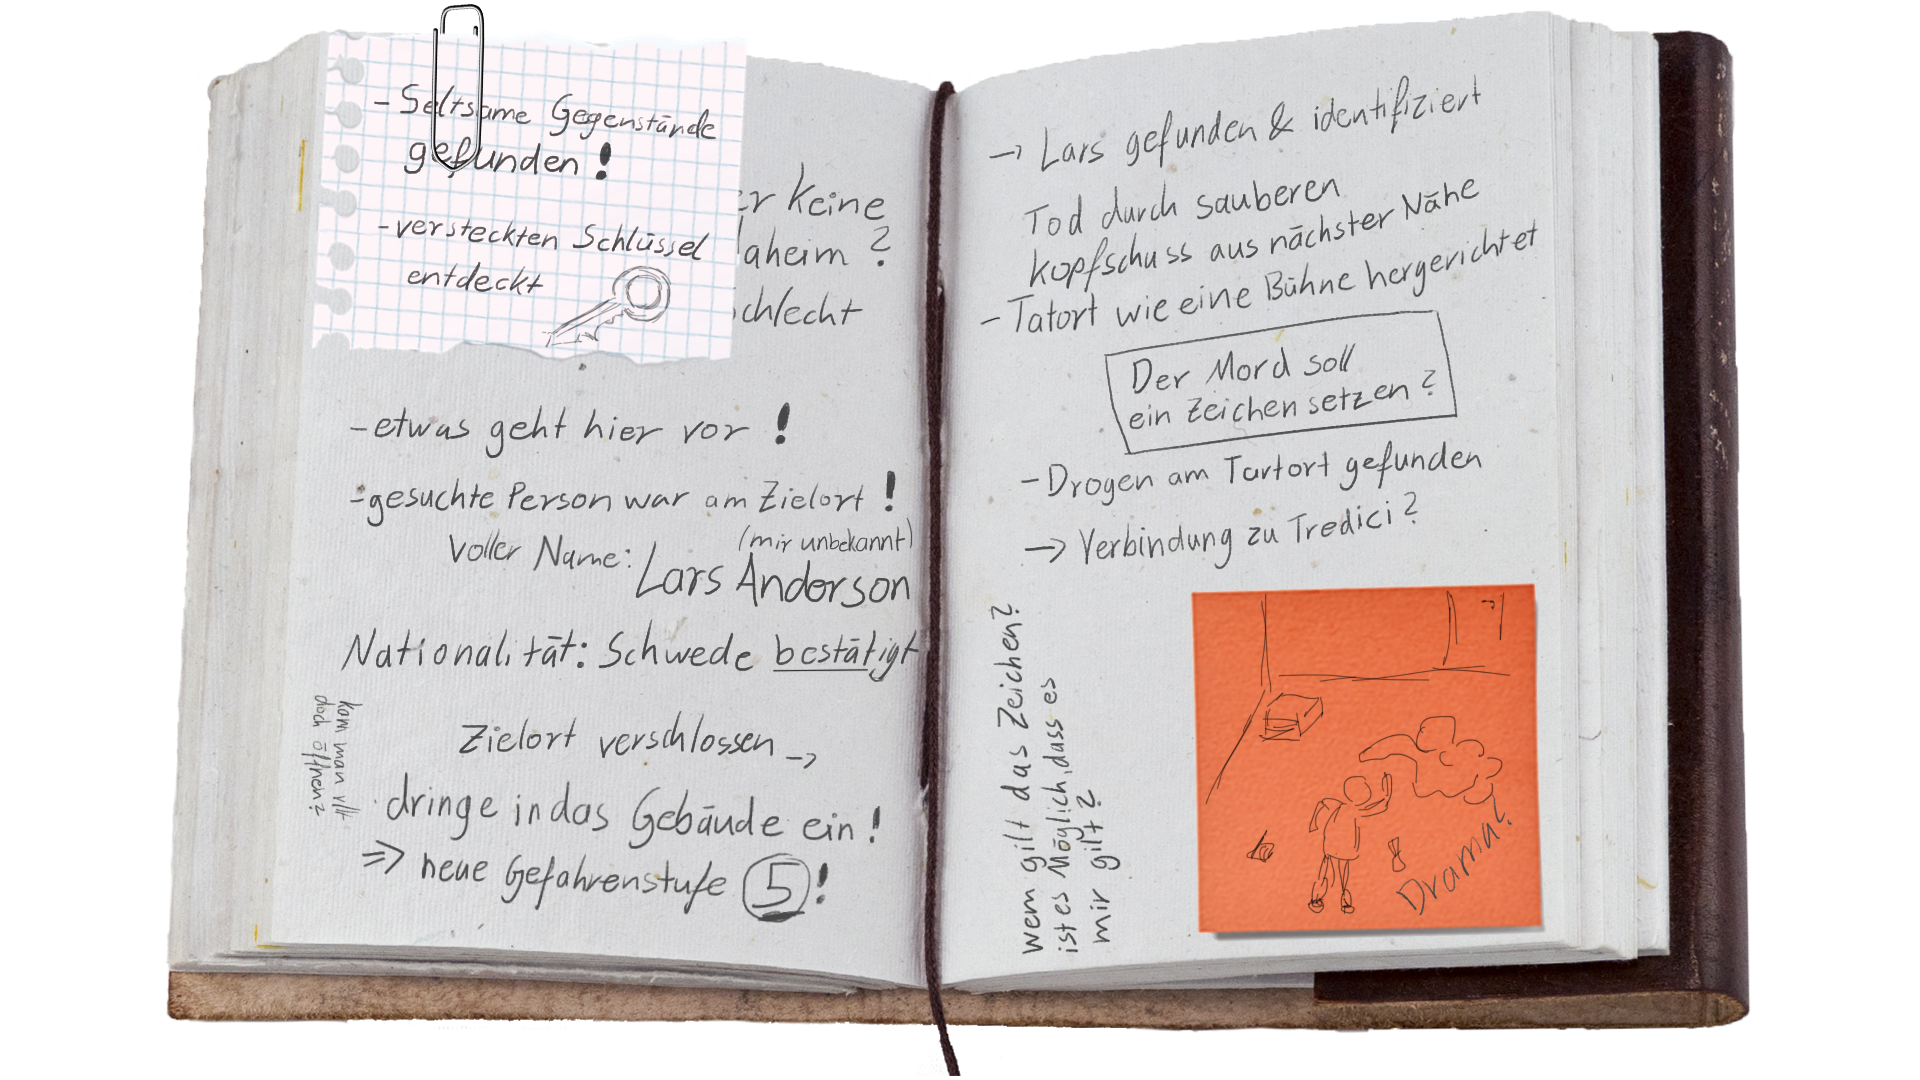 - Seltsame Gegenstände
gefunden !
- versteckten Schlüssel
entdeckt
er keine
aheim ?
chlecht
- etwas geht hier vor !
- gesuchte Person war am Zielort !
(mir unbekannt)
Voller Name: Lars Anderson
Nationalität: Schwede bestätigt
kann man vllt
doch öffnen?
Zielort verschlossen →
dringe in das Gebäude ein !
⇒ neue Gefahrenstufe 5 !
→ Lars gefunden & identifiziert
Tod durch sauberen
Kopfschuss aus nächster Nähe
- Tatort wie eine Bühne hergerichtet
Der Mord soll
ein Zeichen setzen ?
- Drogen am Tartort gefunden
→ Verbindung zu Tredici ?
wem gilt das Zeichen?
ist es Möglich, dass es
mir gilt ?
Drama?